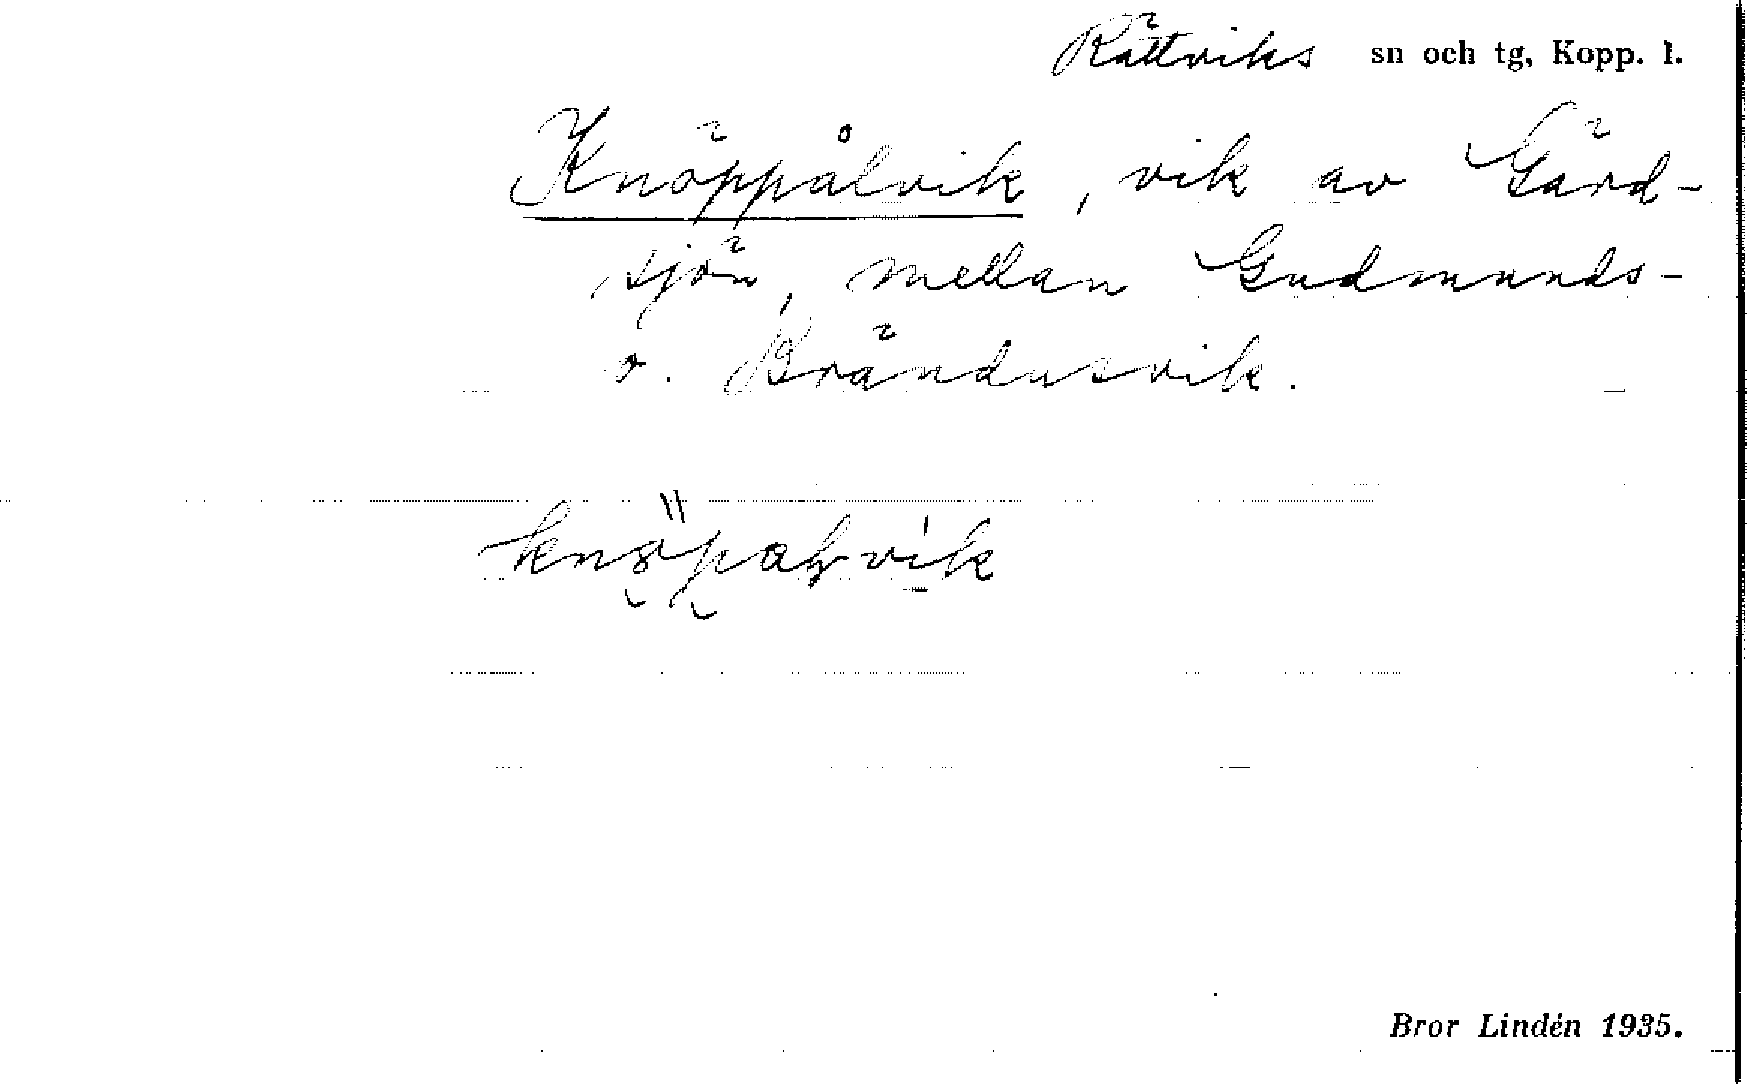 Rättviks sn och tg, Kopp. l.
Knöppålvik, vik av Gärd-
sjön, mellan Gudmunds-
o. Brändusvik.
Bror Lindén 1935.